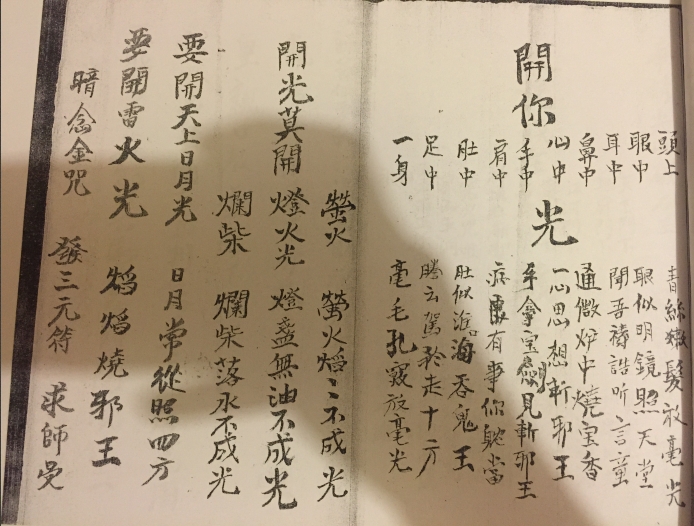 開你光
頭上 青絲嫩髮放毫光
眼中 眼似明鏡照天堂
耳中 聞吾禱誥听言童
鼻中 通微炉中燒宝香
心中 一心思想斬邪王
手中 手拿宝劍見斬邪王
肩中 有事你躭當
肚中 肚似海吞鬼王
足中 騰云駕走十方
一身 毫毛孔竅放毫光
螢火 螢火熖〻不成光
開光莫開 燈火光 燈盞無油不成光
爛柴 爛柴落水不成光
要開天上日月光 日月常從照四方
要開雷火光 熖熖燒邪王
暗念金咒 發三元符 求師受